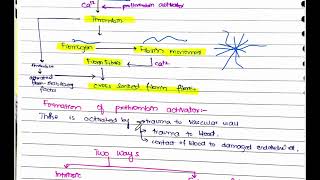 Ca²⁺ prothrombin activator
Thrombin
Fibrinogen Fibrin monomers
Ca²⁺
Fibrin Fibres
activated
factor
cross linked fibrin fibres
Formation of prothrombin activator:-
This is activated by trauma to vascular wall
trauma to blood.
contact of blood to damaged endothelial.
Two ways
Intrinsic